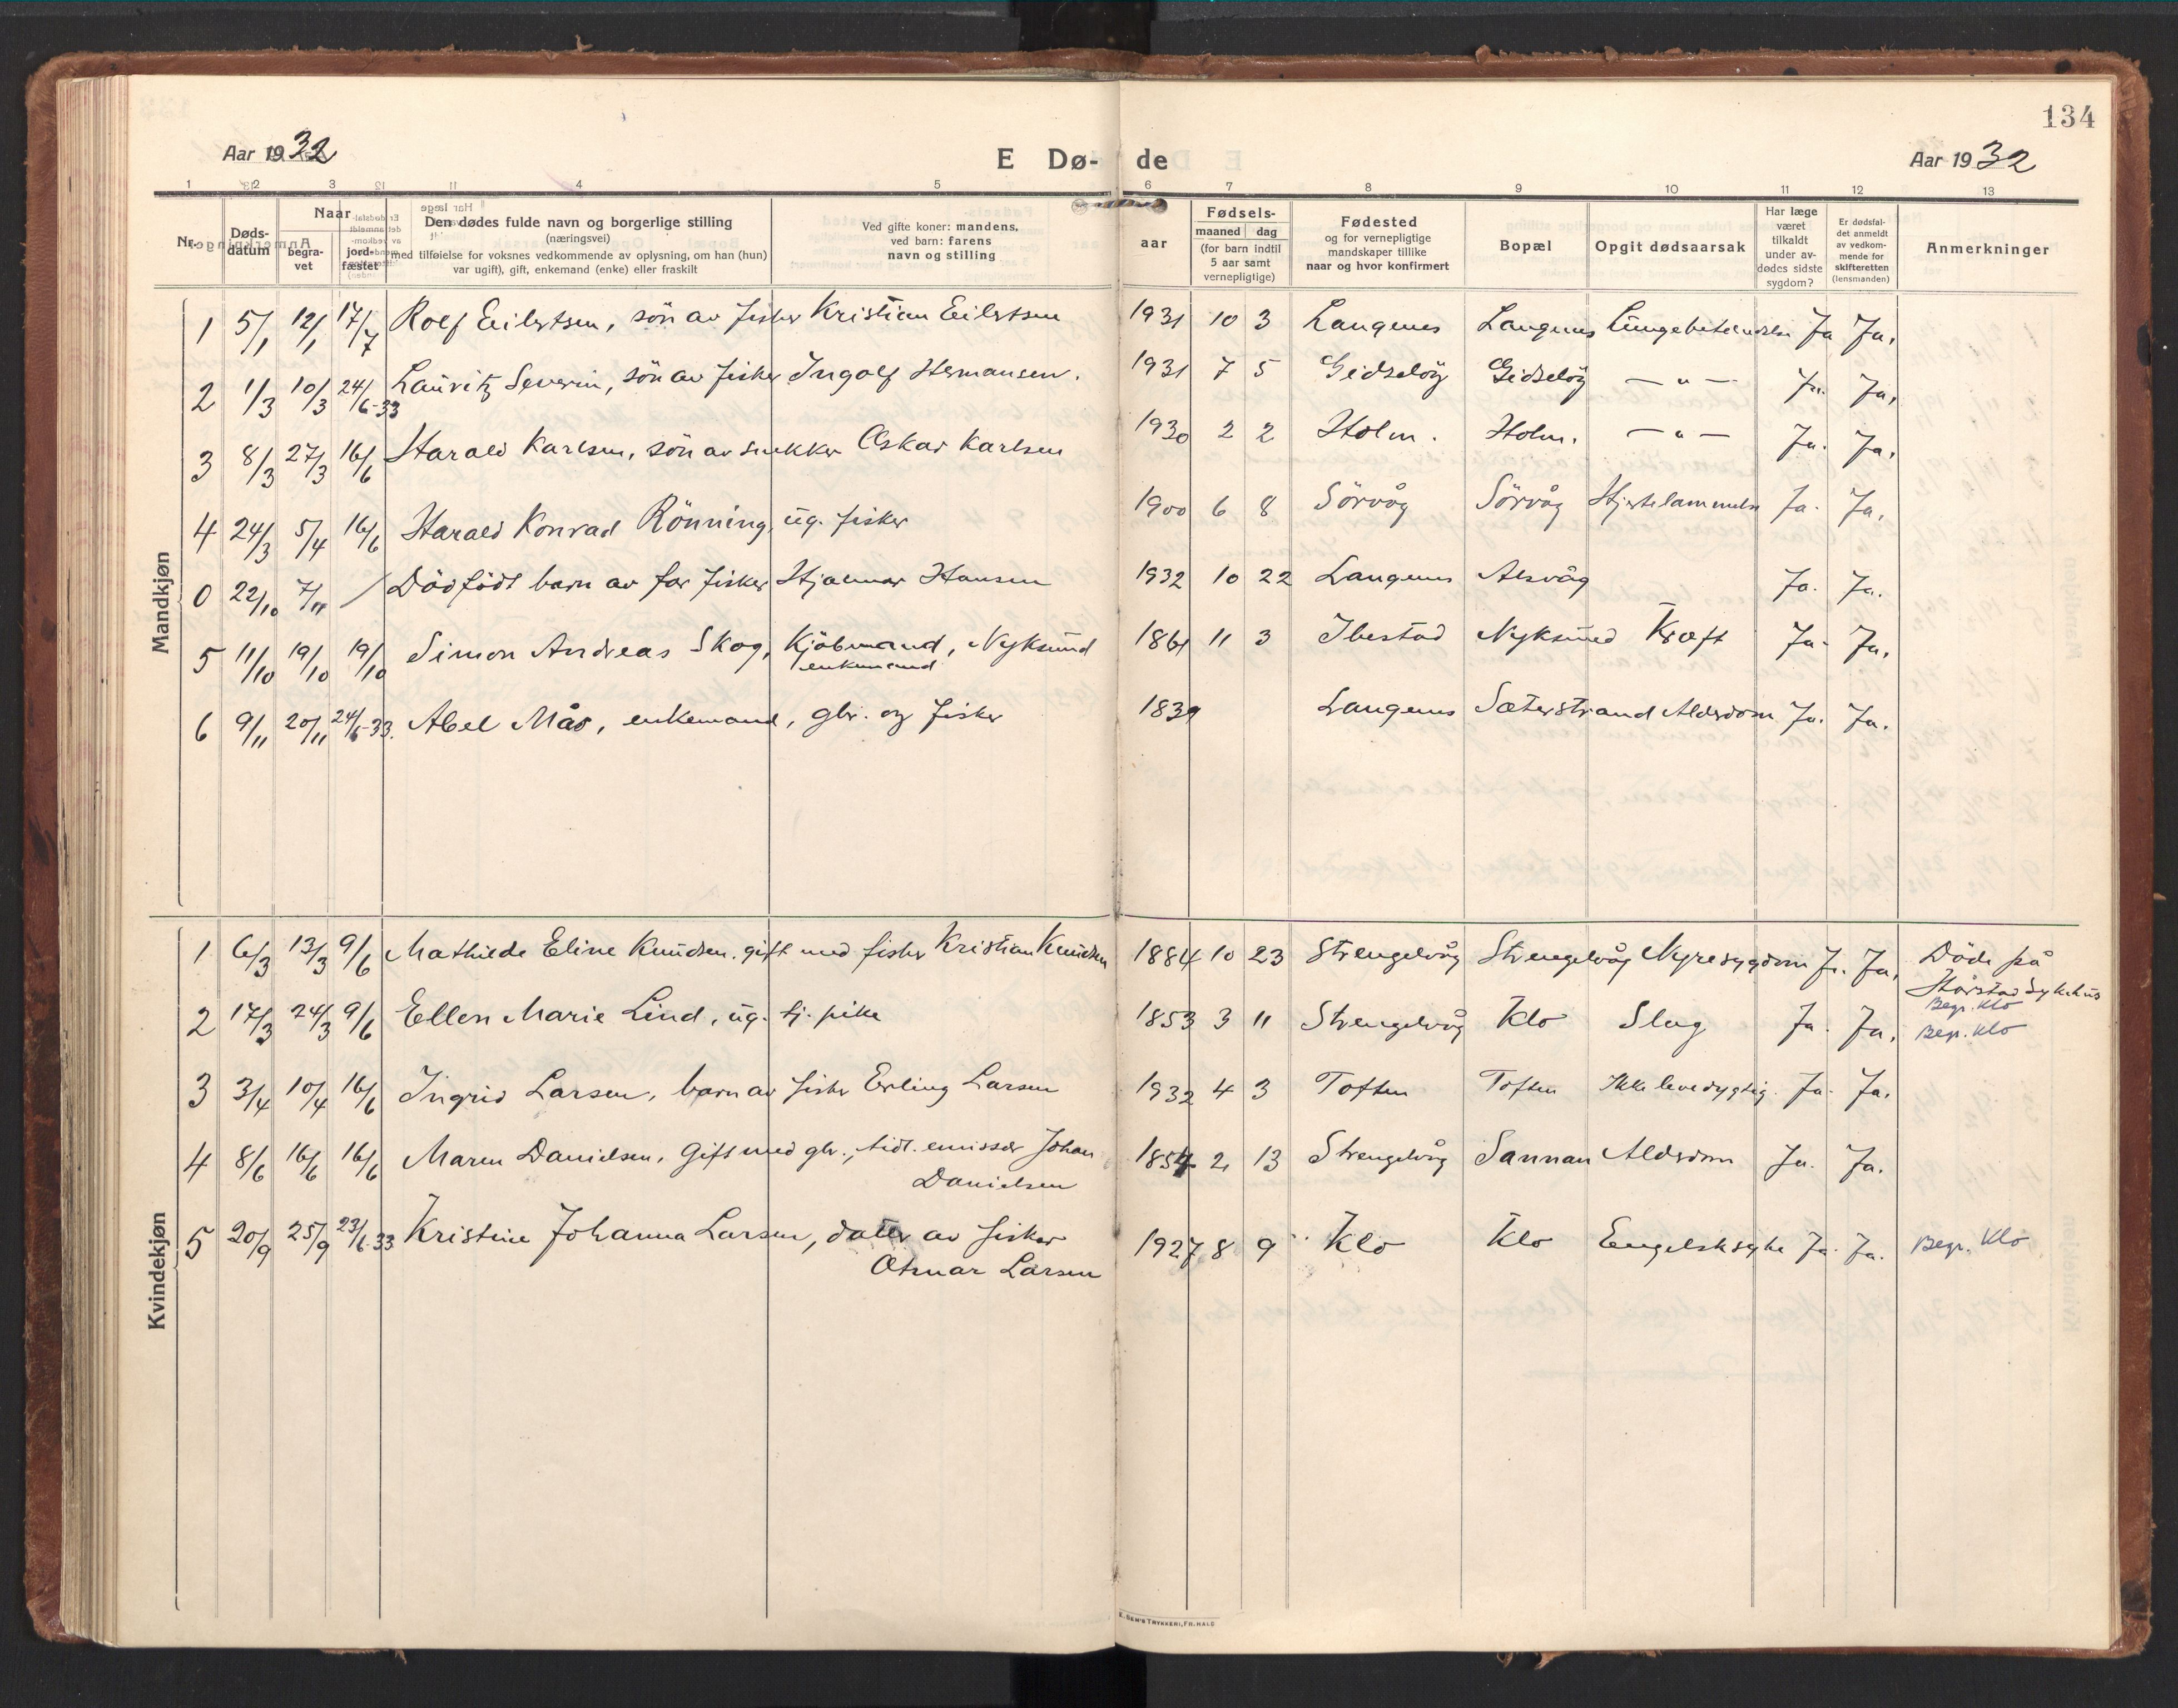 134
Aar 1932 E Dø- de Aar 1932
1 2 3 4 5 6 7 8 9 10 11 12 13
Nr. Døds-datum Naar begra-vet jord-fæstet Den dødes fulde navn og borgerlige stilling (næringsvei) med tilføielse for voksnes vedkommende av oplysning, om han (hun) var ugift), gift, enkemand (enke) eller fraskilt Ved gifte koner: mandens, ved barn: farens navn og stilling Fødsels- aar maaned dag (for barn indtil 5 aar samt vernepligtige) Fødested og for vernepligtige mandskaper tillike naar og hvor konfirmert Bopæl Opgit dødsaarsak Har læge været tilkaldt under av-dødes sidste sygdom? Er dødsfal-det anmeldt av vedkom-mende for skifteretten (lensmanden) Anmerkninger
Mandkjøn
1 5/1 12/1 17/7 Rolf Eilertsen, søn av fisker Kristian Eilertsen 1931 10 3 Langenes Langenes Lungebetændelse Ja Ja.
2 1/3 10/3 24/6-33 Lauritz Severin, sön av fisker Ingolf Hermansen. 1931 7 5 Gidselöy Gidselöy — " — Ja. Ja.
3 8/3 27/3 16/6 Harald Karlsen, sön av snekker Oskar Karlsen 1930 2 2 Holm. Holm. — " — Ja. Ja.
4 24/3 5/4 16/6 Harald Konrad Rönning, ug. fisker 1900 6 8 Sörvåg Sörvåg Hjertelammelse Ja. Ja.
0 22/10 7/11 / Dödfödt barn av far fisker Hjalmar Hansen 1932 10 22 Langenes Alsvåg Ja. Ja.
5 11/10 19/10 19/10 Simon Andreas Skog, Kjöbmand, Nyksund 1861 11 3 Ibestad Nyksund Kræft Ja. Ja.
enkemand
6 9/11 20/11 24/6-33. Abel Mås, enkemand, gbr. og fisker 1839 Langenes Sæterstrand Alderdom Ja. Ja.
Kvindekjøn
1 6/3 13/3 9/6 Mathilde Eline Knudsen. gift med fisker Kristian Knudsen 1884 10 23 Strengelvåg Strengelvåg Nyresygdom Ja. Ja. Döde på
Harstad Sykehus
Begr. Klo
2 17/3 24/3 9/6 Ellen Marie Lind, ug. tj. pike 1853 3 11 Strengelvåg Klo Slag Ja. Ja. Begr. Klo
3 3/4 10/4 16/6 Ingrid Larsen, barn av fisker Erling Larsen 1932 4 3 Toften Toften Ikke levedygtig. Ja. Ja.
4 8/6 16/6 16/6 Maren Danielsen, gift med gbr., tidl. emissær Johan 1854 2 13 Strengelvåg Sannan Alderdom Ja. Ja.
Danielsen
5 20/9 25/9 23/6-33 Kristine Johanna Larsen, datter av fisker 1927 8 9 Klo Klo Engelsksyke Ja. Ja. Begr. Klo
Otmar Larsen